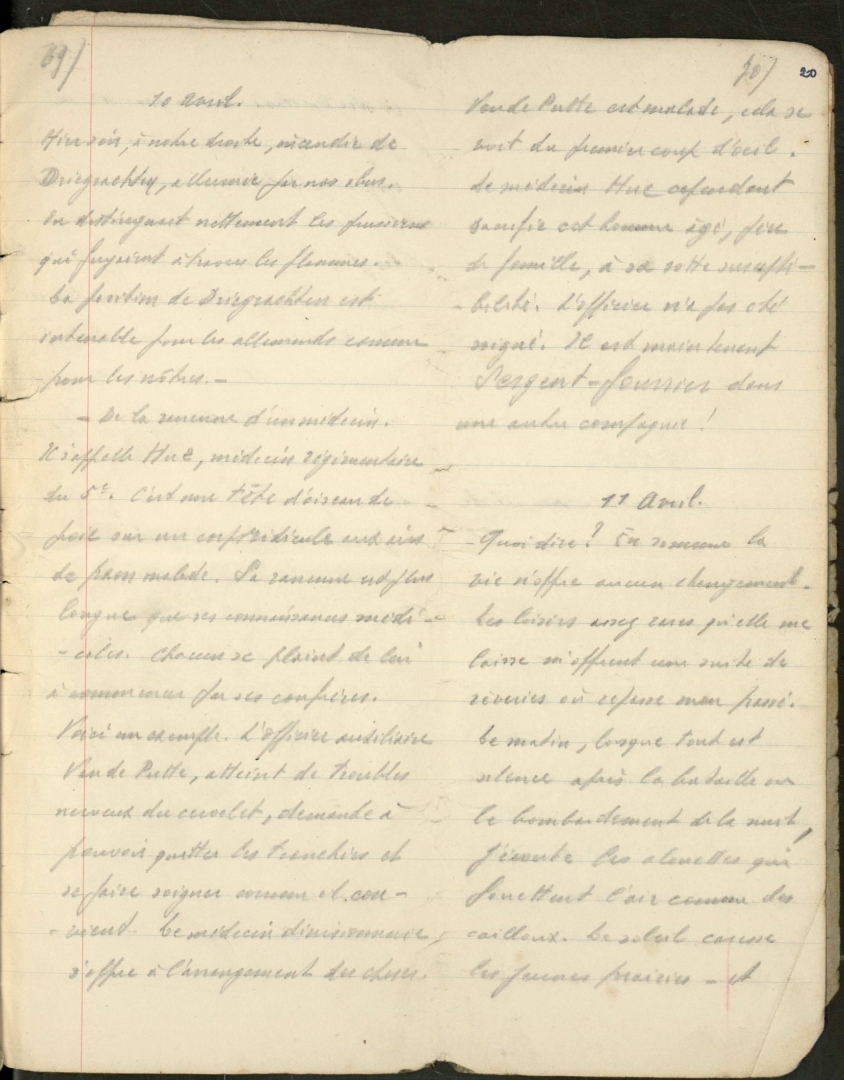 69/
10 Avril.
Hier soir, à notre droite, incendie de
Driegrachten, allumé par nos obus.
On distinguait nettement les prussiens
qui fuyaient à travers les flammes.
Le fortin de Driegrachten est
intenable pour les allemands comme
pour les nôtres. -
- De la rancune d'un médecin.
Il s'appelle Hue, médecin régimentaire
du 5e. C'est une tête d'oiseau de
proie sur un corps ridicule aux airs
de paon malade. Sa rancune est plus
longue que ses connaissances médi-
- cales. Chacun se plaint de lui
à commencer par ses confrères.
Voici un exemple. L'officier auxiliaire
Van de Putte, atteint de troubles
nerveux du cervelet, demande à
pouvoir quitter les tranchées et
se faire soigner comme il con-
- vient. Le médecin divisionnaire,
s'offre à l'arrangement des choses.
70/
20
Van de Putte est malade, cela se
voit du premier coup d'oeil.
Le médecin Hue cependant
sacrifie cet homme âgé, père
de famille, à sa sotte suscepti-
- bilité. L'officier n'a pas été
soigné. Il est maintenant
Sergent-fourrier dans
une autre compagnie!
11 Avril.
- Quoi dire? En somme la
vie n'offre aucun changement.
Les loisirs assez rares qu'elle me
laisse m'offrent une suite de
rêveries où repasse mon passé.
Le matin, lorsque tout est
silence après la bataille ou
le bombardement de la nuit,
j'écoute les alouettes qui
fouettent l'air comme des
cailloux. Le soleil caresse
les jeunes prairies - et